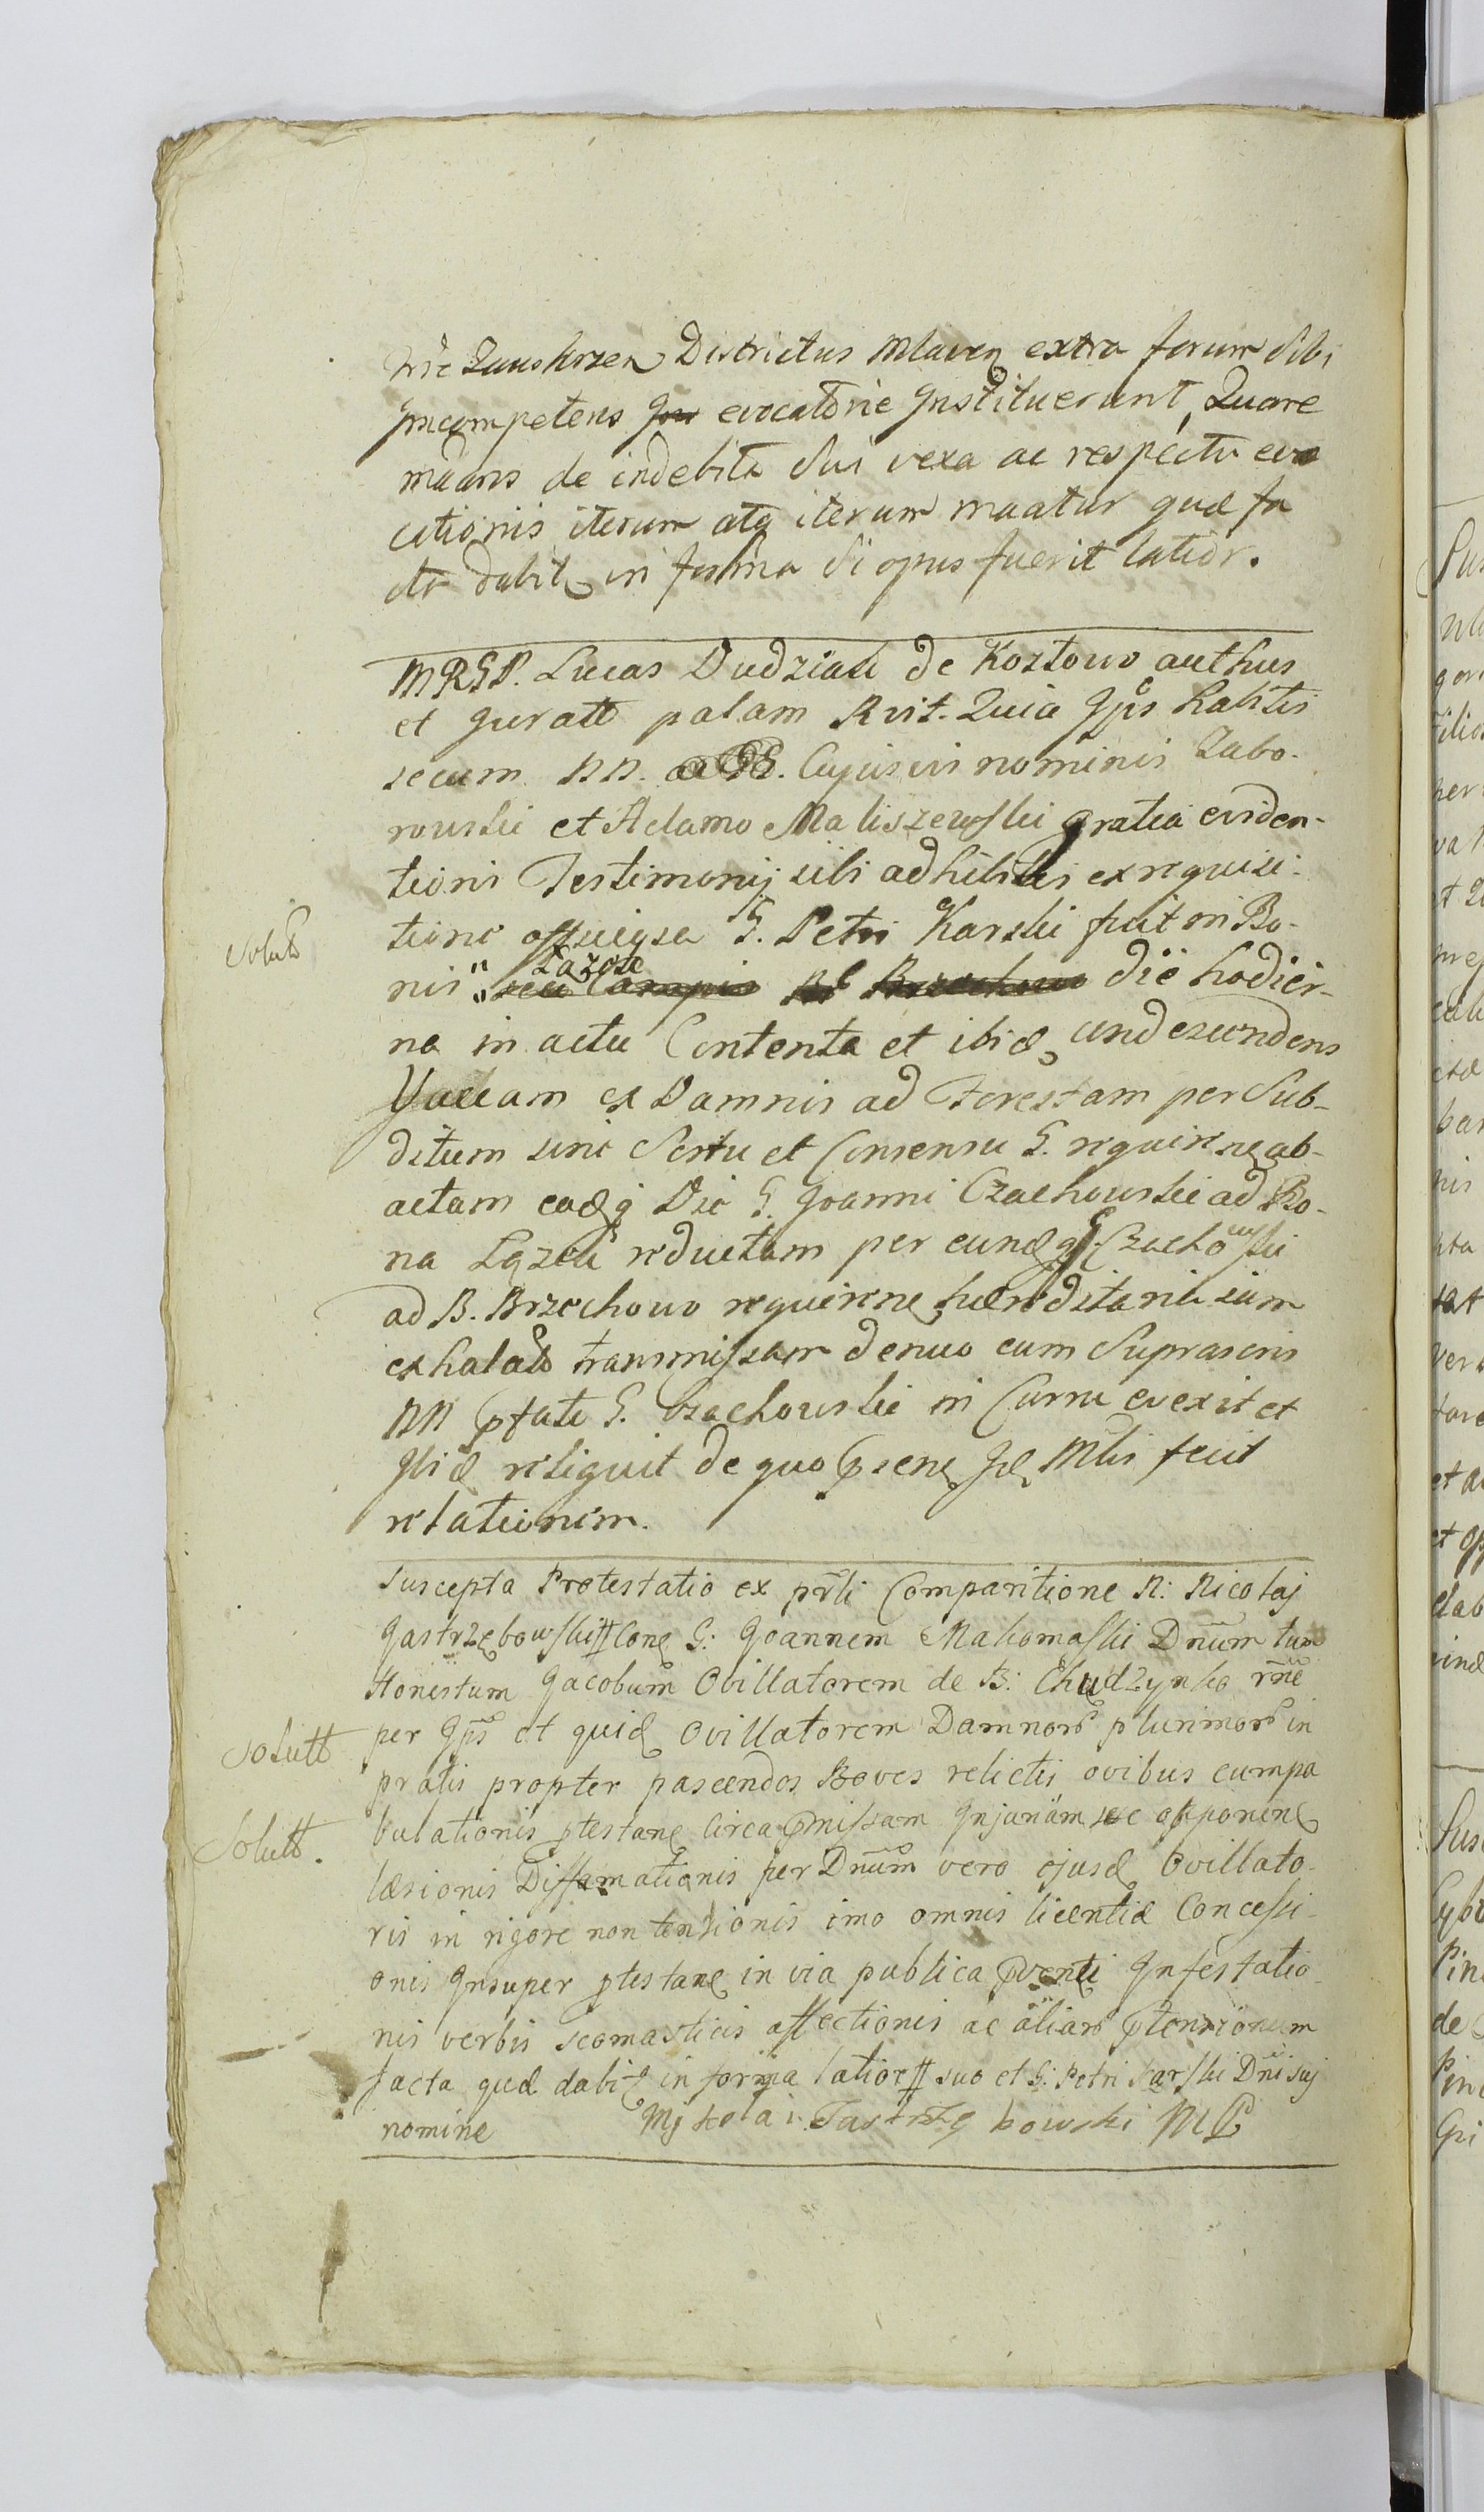 Zauskrzen Districtus Mlaven extra forum Sibi
Incompetens evocatorie Instituerunt, Quare
mãans de indebita Sui vexa ac respectu evo
cationis iterum atq iterum maatur quæ fa
cta dabit in forma Si opus fuerit latior.
MRGP. Lucas Dudziak de Kozłowo authus
et Juratt palam Rvit. Quia Ips habitis
secum NN. Cujusvis nominis Zabo-
rowski et Adamo Maliszewski gratia eviden-
tioris Testimonij sibi adhibitis ex requisi-
Solutt
tione G. Petri Karski fuit in Bo-
nis Łazęki seu Campis Brzechowo die hodier-
na in actu Contenta et ibid undecundens
Vaccam ex Damnis ad Forestam per Sub-
ditum sine Scitu et Consensu G. requiren ab-
actam eadq Die G. Joanni Czachowski ad Bo-
na Łązeki reductam per eundq G. Czachowski
ad B. Brzechowo requiren hæreditaria jam
exhalatt transmissam denuo cum Suprascris
NN ptati G. Czachowski in Curru evexit et
Ibid reliquit de quo psens Id Mlis fecit
relationem.
Suscepta Protestatio ex prli Comparitione N: Nicolaj
Jastrzębowski # Cone G: Joannem Makomaski Dnum tum
Honestum Jacobum Ovillatorem de B: Chudzynko rne
Solutt
per Ips et quid Ovillatorem Damnor plurimor in
pratis propter pascendos Boves relictis ovibus eumpa
Solutt.
bulationis ptestans Circa pmissam Injuriam se opponens
læsionis Diffamationis per Dnum vero ejusd Ovillato-
ris in rigore non tentionis imo omnis licentiæ Concessi-
onis Insuper ptestans in via publica Infestatio-
nis verbis scomasticis affectionis ac aliar ptensionum
facta quæ dabit in forma latiore # suo et G: Petri Karski Dni sui
nomine Mikołai Jastrzębowski MP